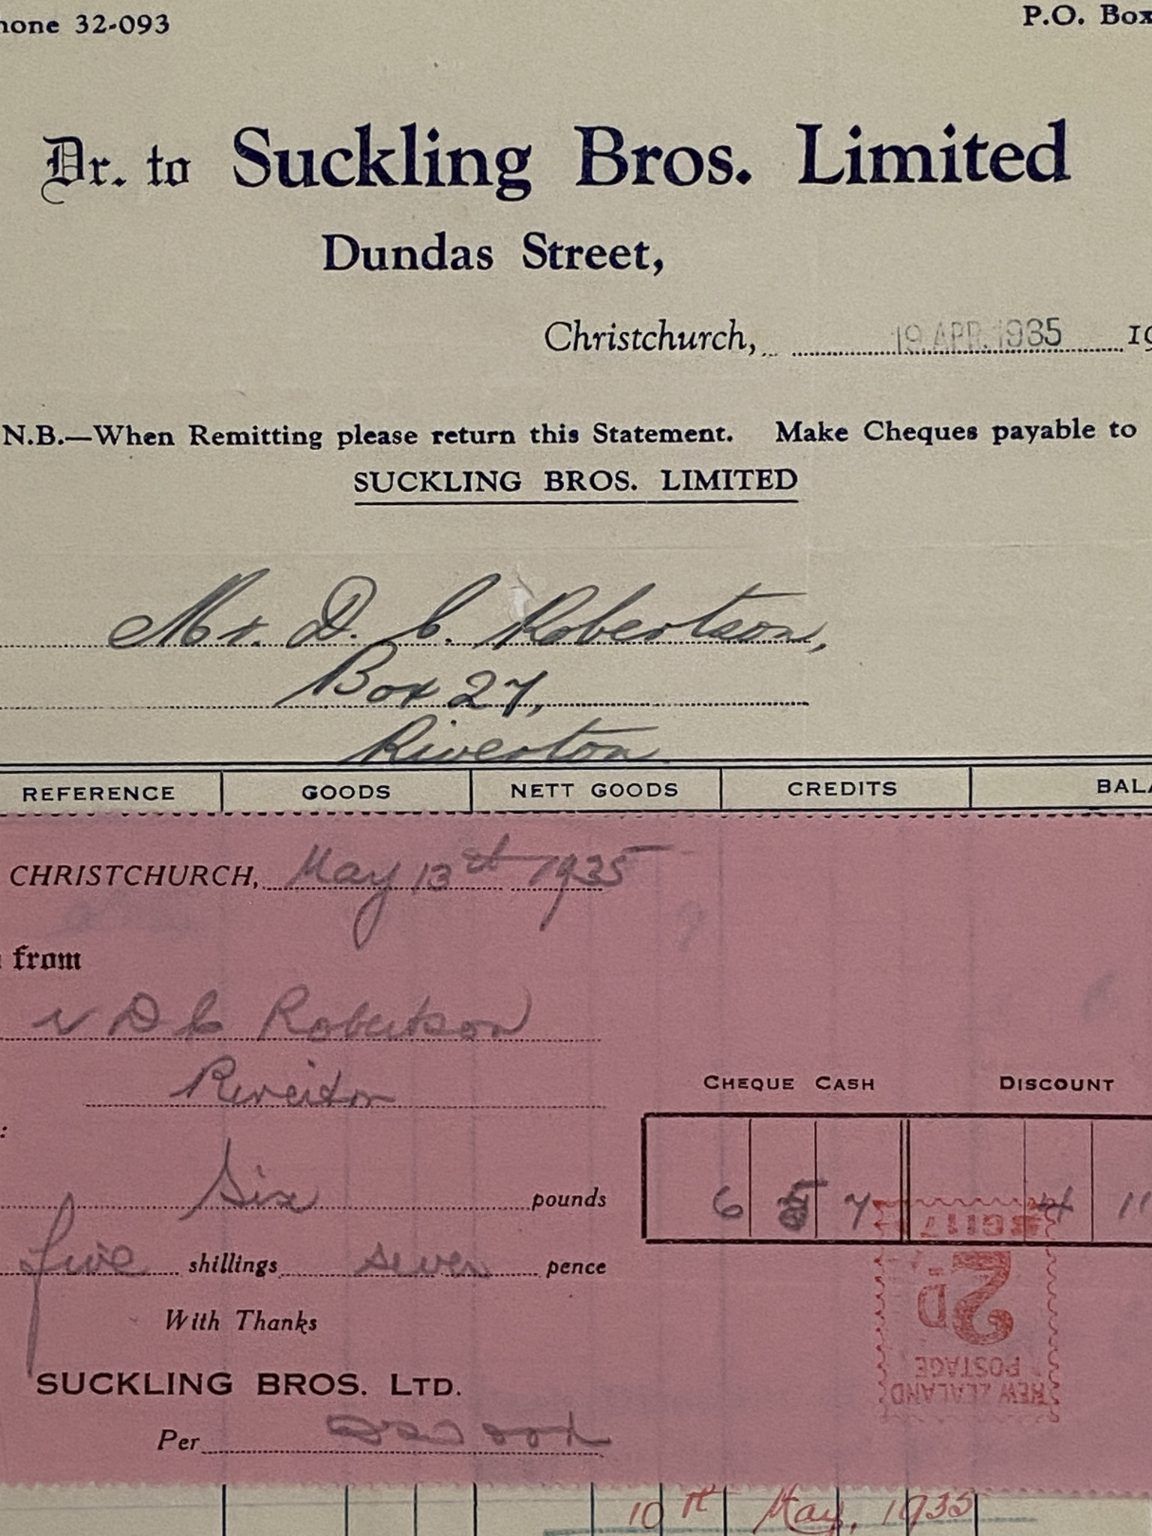 hone 32-093 P.O. Box
Dr. to Suckling Bros. Limited
Dundas Street,
Christchurch, 19 APR. 1935 19
N.B.—When Remitting please return this Statement. Make Cheques payable to
SUCKLING BROS. LIMITED
Mr. D. C. Robertson,
Box 27,
Riverton
REFERENCE GOODS NETT GOODS CREDITS BALA
CHRISTCHURCH, May 13st 1935
from
r D C Robertson
Riverton
CHEQUE CASH DISCOUNT
:
Six pounds 6 5 7 4 11
five shillings seven pence
With Thanks
SUCKLING BROS. LTD.
Per
2D
NEW ZEALAND
POSTAGE
10th May, 1935